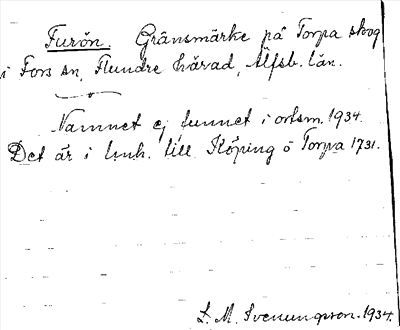 Furön. Gränsmärke på Torpa skog
i Fors sn, Flundre härad, Älfsb. län.
Namnet ej funnet i ortsm. 1934.
Det är i luh. till Köping o Torpa 1731.
L. M. Svenungsson. 1934.